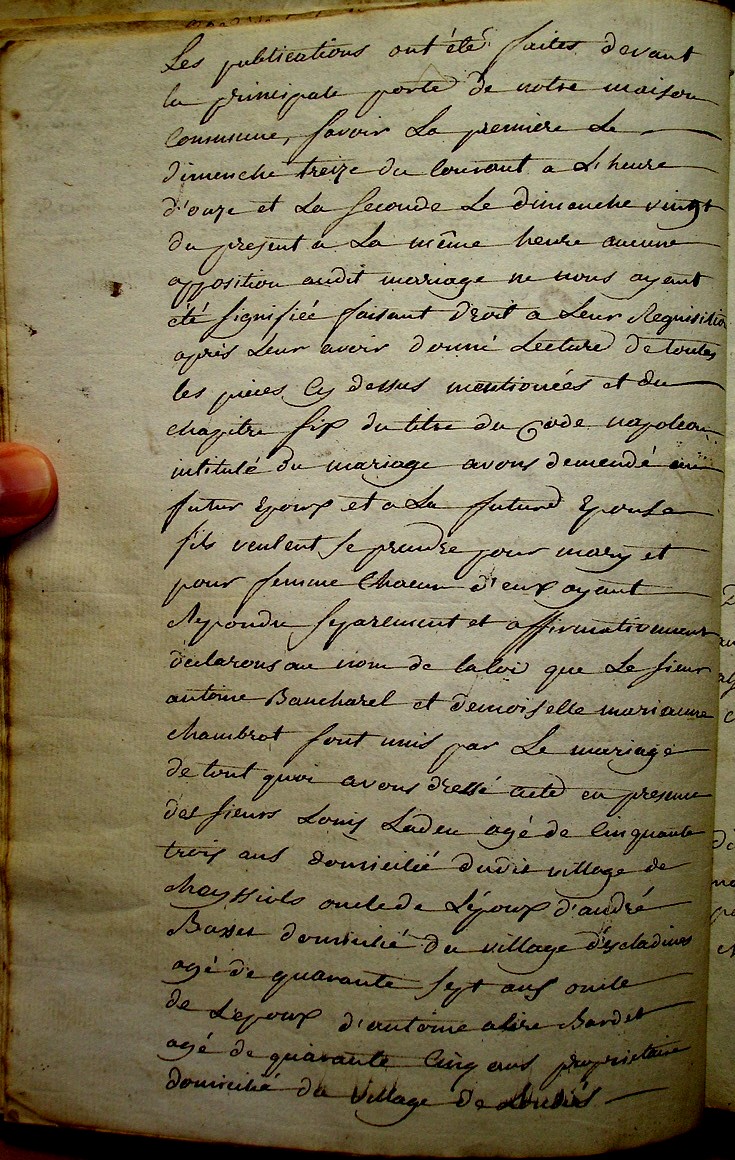 Les publications ont été faites devant
la principale porte de notre maison
Commune, savoir La premiere Le
dimenche treize du Courant a L'heure
d'onze et La seconde Le dimanche vingt
du present a La même heure aucune
opposition audit mariage ne nous ayant
été signifiée faisant droit a Leur Requisition
après Leur avoir donné Lecture de toutes
les pieces Cy dessus mentionées et du
chapitre six du titre du Code napoleon
intitulé du mariage avons demendé au
futur Epoux et a La future Epouse
sils veulent se prendre pour mary et
pour femme Chacun d'eux ayant
Repondu separement et affirmativement
declarons au nom de la loi que Le sieur
antoine Bancharel et demoiselle marianne
chambrot sont unis par Le mariage
de tout quoi avons dressé acte en presence
des sieurs Louis Ladeu agé de Cinquante
trois ans domicilié dudit village de
Chayssiols oncle de L'époux d'andré
Basset domicilié du village d'Escladines
agé de quarante sept ans oncle
de Lepoux d'antoine alire Bardet
agé de quarante Cinq ans proprietaire
domicilié du village de